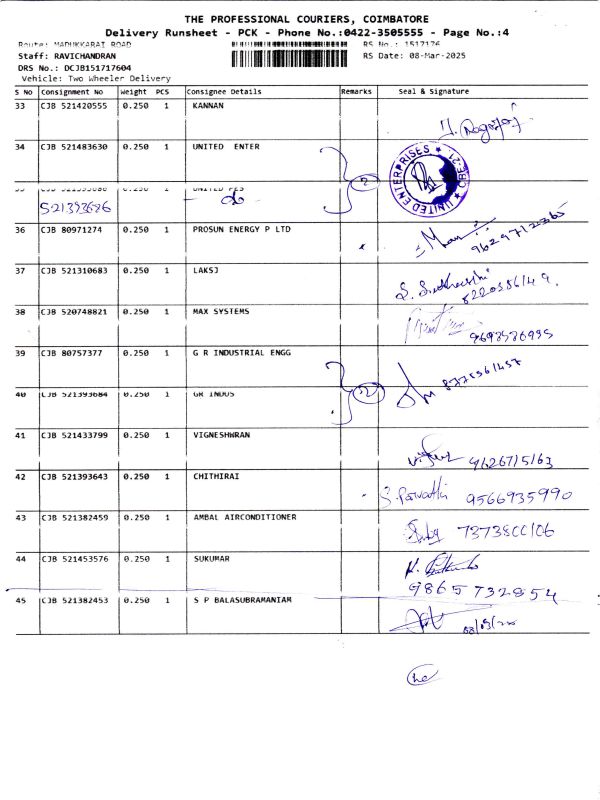 THE PROFESSIONAL COURIERS, COIMBATORE
Delivery Runsheet - PCK - Phone No.:0422-3505555 - Page No.:4
Route: MADUKKARAI ROAD RS No.: 1517176
Staff: RAVICHANDRAN RS Date: 08-Mar-2025
DRS No.: DCJB151717604
Vehicle: Two Wheeler Delivery
S No Consignment No Weight PCS Consignee Details Remarks Seal & Signature
33 CJB 521420555 0.250 1 KANNAN
34 CJB 521483630 0.250 1 UNITED ENTER
UNITED ENTERPRISES CBE-21
2
35 CJB 521393686 0.250 1
521393686 do
36 CJB 80971274 0.250 1 PROSUN ENERGY P LTD
9629712365
37 CJB 521310683 0.250 1 LAKSJ
38 CJB 520748821 0.250 1 MAX SYSTEMS
39 CJB 80757377 0.250 1 G R INDUSTRIAL ENGG
2
40 CJB 521393684 0.250 1 GR INDUS
41 CJB 521433799 0.250 1 VIGNESHWRAN
9626715163
42 CJB 521393643 0.250 1 CHITHIRAI
S. Parvathi 9566935990
43 CJB 521382459 0.250 1 AMBAL AIRCONDITIONER
7373800106
44 CJB 521453576 0.250 1 SUKUMAR
9865732854
45 CJB 521382453 0.250 1 S P BALASUBRAMANIAM